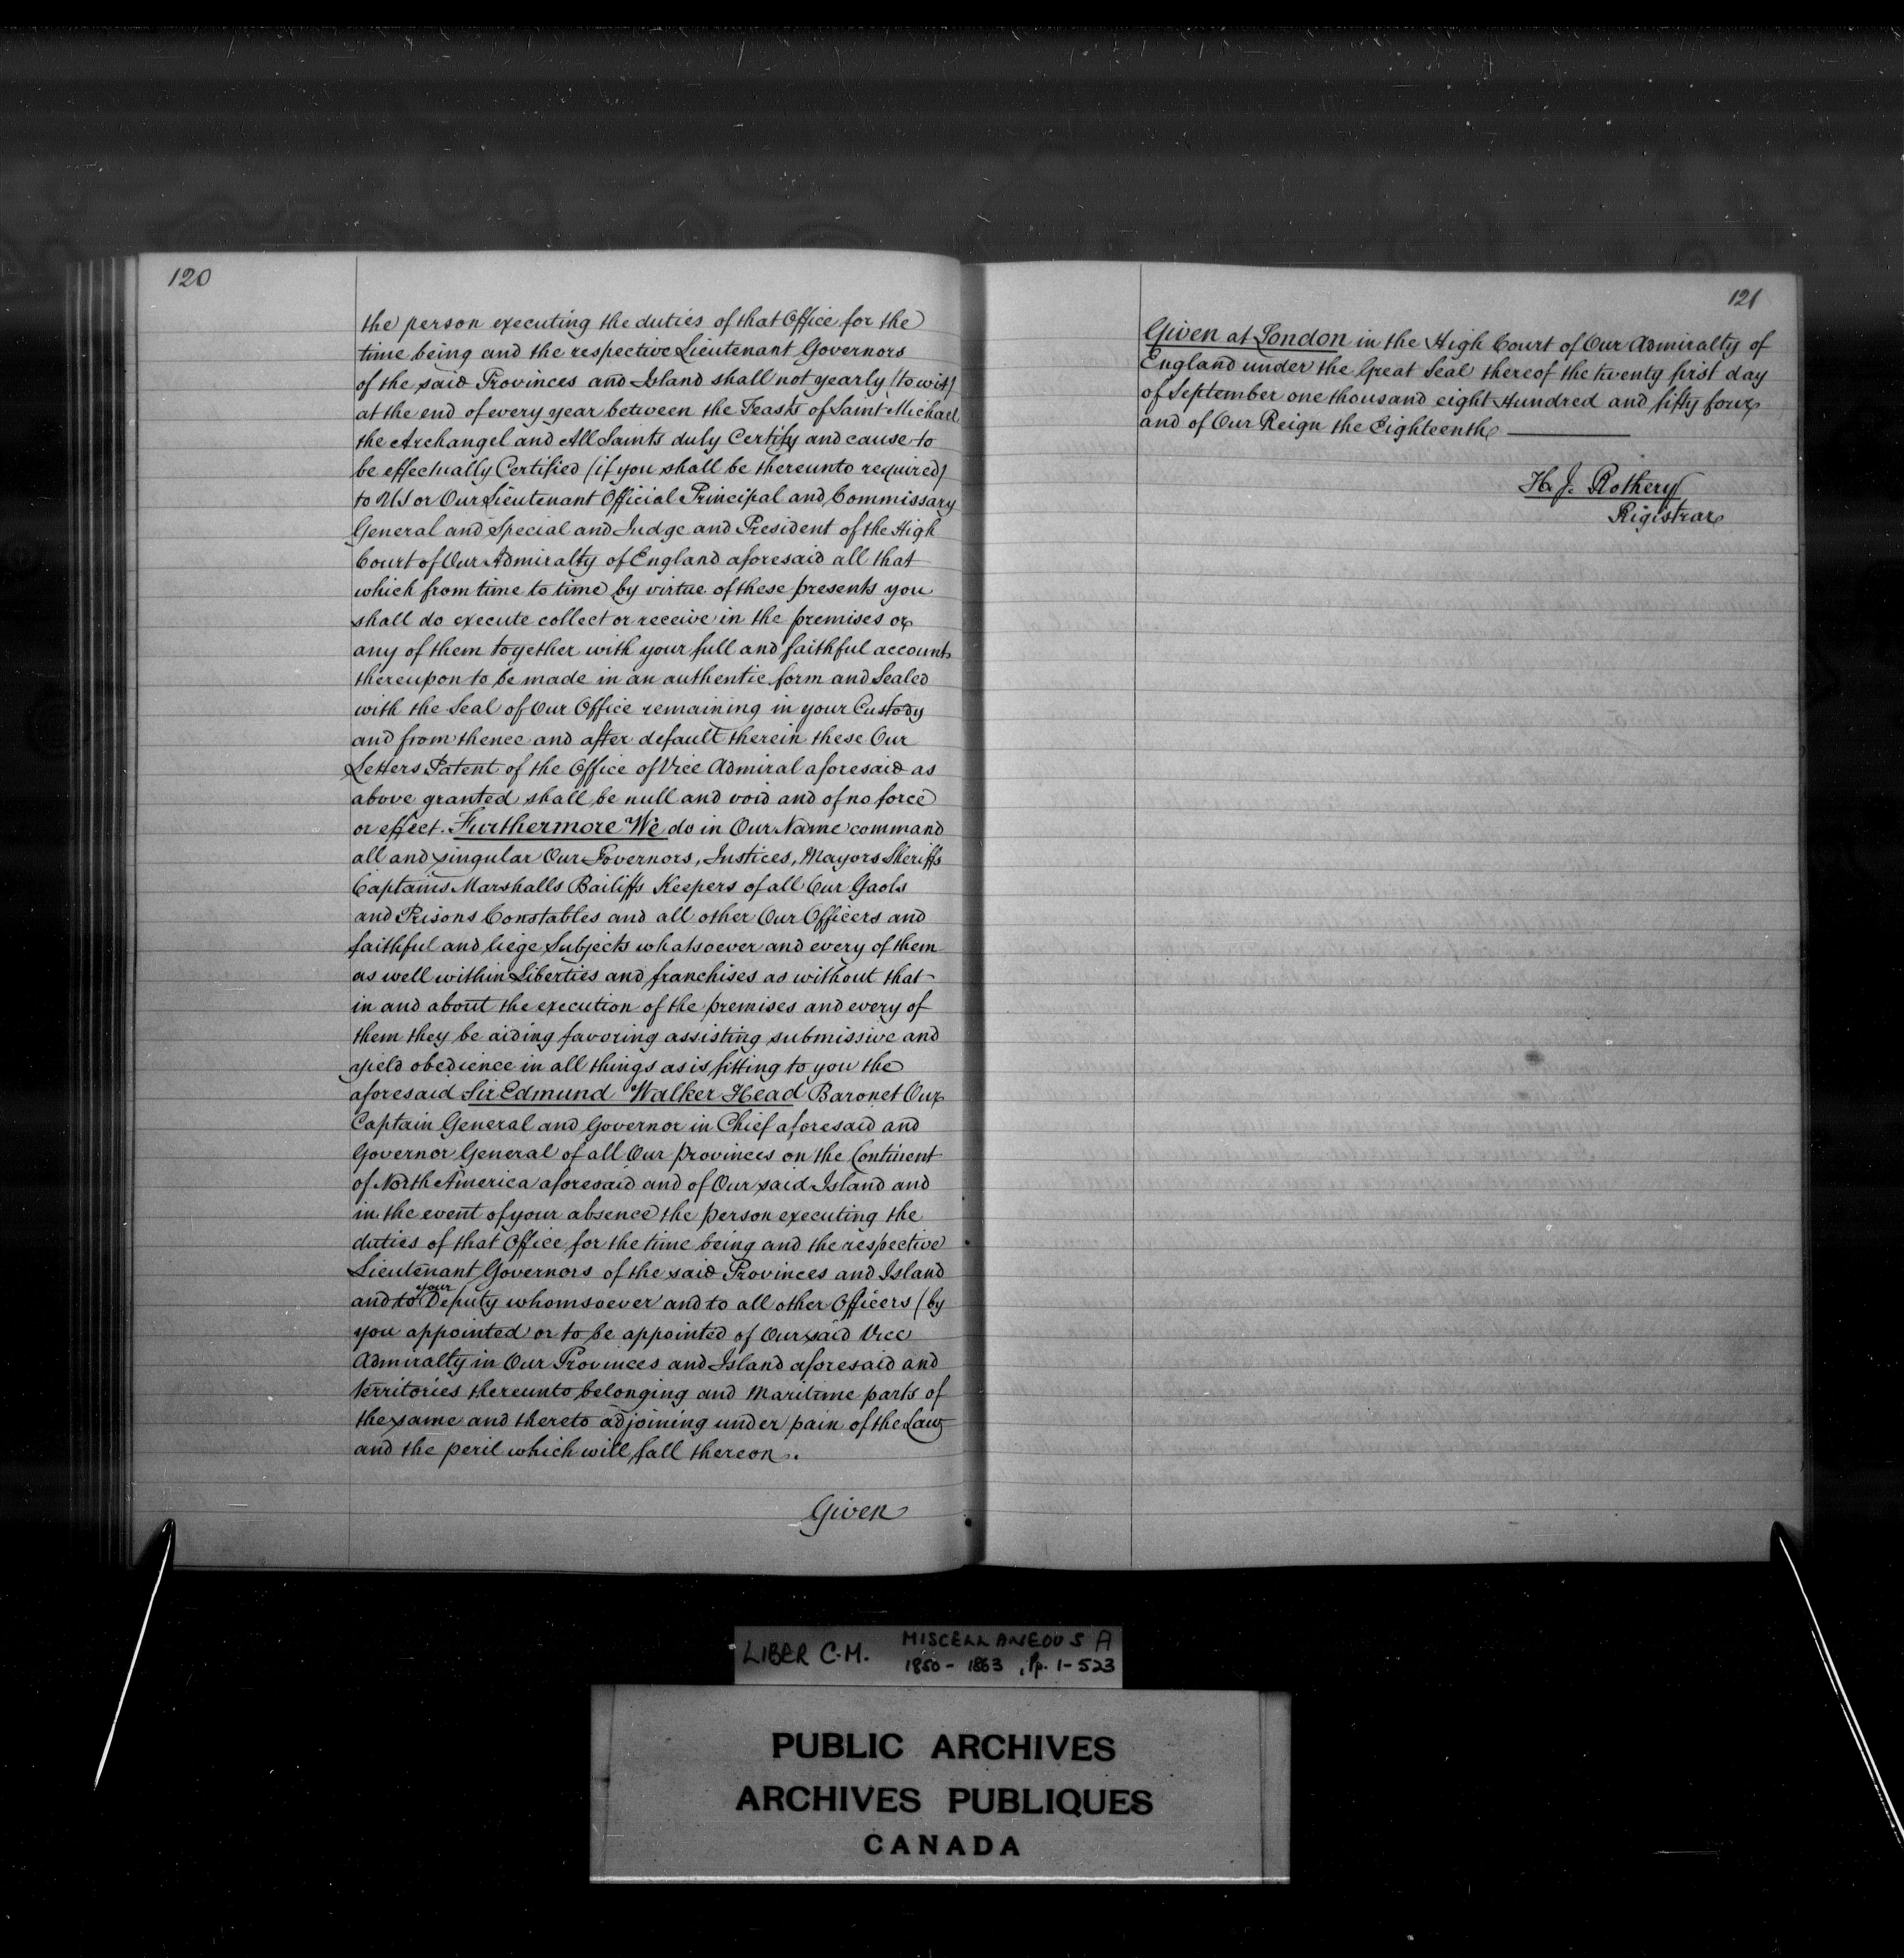 120
the person executing the duties of that Office for the
time being and the respective Lieutenant Governors
of the said Provinces and Island shall not yearly (to wit)
at the end of every year between the Feasts of Saint Michael
the Archangel and All Saints duly Certify and cause to
be effectually Certified (if you shall be thereunto required)
to US or Our Lieutenant Official Principal and Commissary
General and Special and Judge and President of the High
Court of Our Admiralty of England aforesaid all that
which from time to time by virtue of these presents you
shall do execute collect or receive in the premises or
any of them together with your full and faithful accounts
thereupon to be made in an authentic form and Sealed
with the Seal of Our Office remaining in your Custody
and from thence and after default therein these Our
Letters Patent of the Office of Vice Admiral aforesaid as
above granted shall be null and void and of no force
or effect. Furthermore We do in Our Name command
all and singular Our Governors, Justices, Mayors Sheriffs
Captains Marshalls Bailiffs Keepers of all Our Gaols
and Prisons Constables and all other Our Officers and
faithful and liege Subjects whatsoever and every of them
as well within Liberties and franchises as without that
in and about the execution of the premises and every of
them they be aiding favoring assisting submissive and
yield obedience in all things as is fitting to you the
aforesaid Sir Edmund Walker Head Baronet Our
Captain General and Governor in Chief aforesaid and
Governor General of all Our Provinces on the Continent
of North America aforesaid and of Our said Island and
in the event of your absence the person executing the
duties of that Office for the time being and the respective
Lieutenant Governors of the said Provinces and Island
and to your Deputy whomsoever and to all other Officers (by
you appointed or to be appointed of Our said Vice
Admiralty in Our Provinces and Island aforesaid and
territories thereunto belonging and Maritime parts of
the same and thereto adjoining under pain of the Law
and the peril which will fall thereon.
Given
121
Given at London in the High Court of Our Admiralty of
England under the Great Seal thereof the twenty first day
of September one thousand eight Hundred and fifty four
and of Our Reign the Eighteenth
H. J. Rothery
Registrar
LIBER C.M. MISCELLANEOUS A
1850 - 1863, Pp. 1-523
PUBLIC ARCHIVES
ARCHIVES PUBLIQUES
CANADA